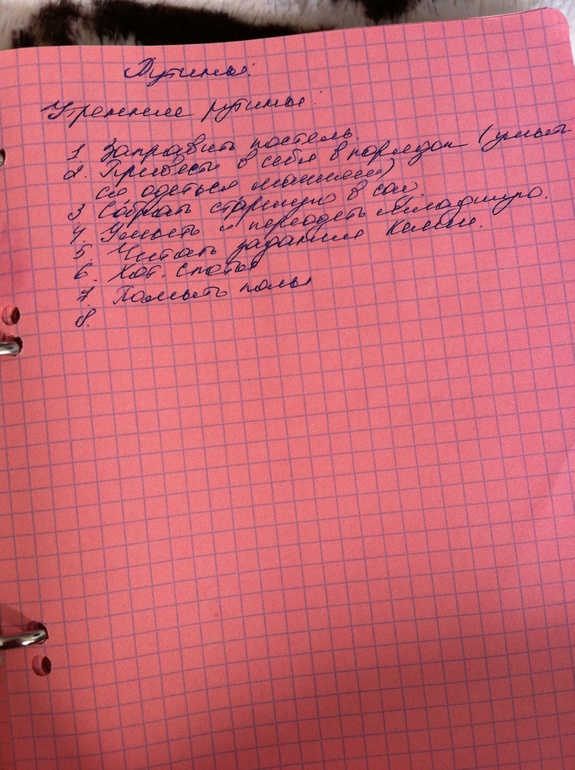 Рутины:
Утренние рутины:
1. Заправить постель
2. Привести в себя в порядок (умыть
ся одеться макияж)
3 Собрать старшую в сад.
4. Умыть и переодеть младшую.
5 Читать задания
6. Хот. споты
7. Помыть полы
8.